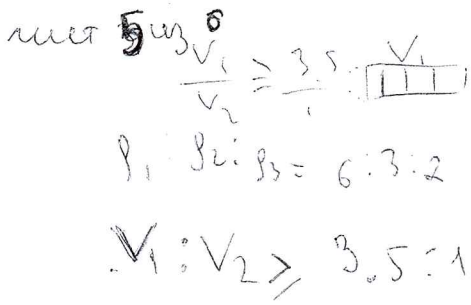 лист 5 из 6
V₁/V₂ ≥ 3.5/1 : V₁
ρ₁ : ρ₂ : ρ₃ = 6 : 3 : 2
V₁ : V₂ ≥ 3.5 : 1